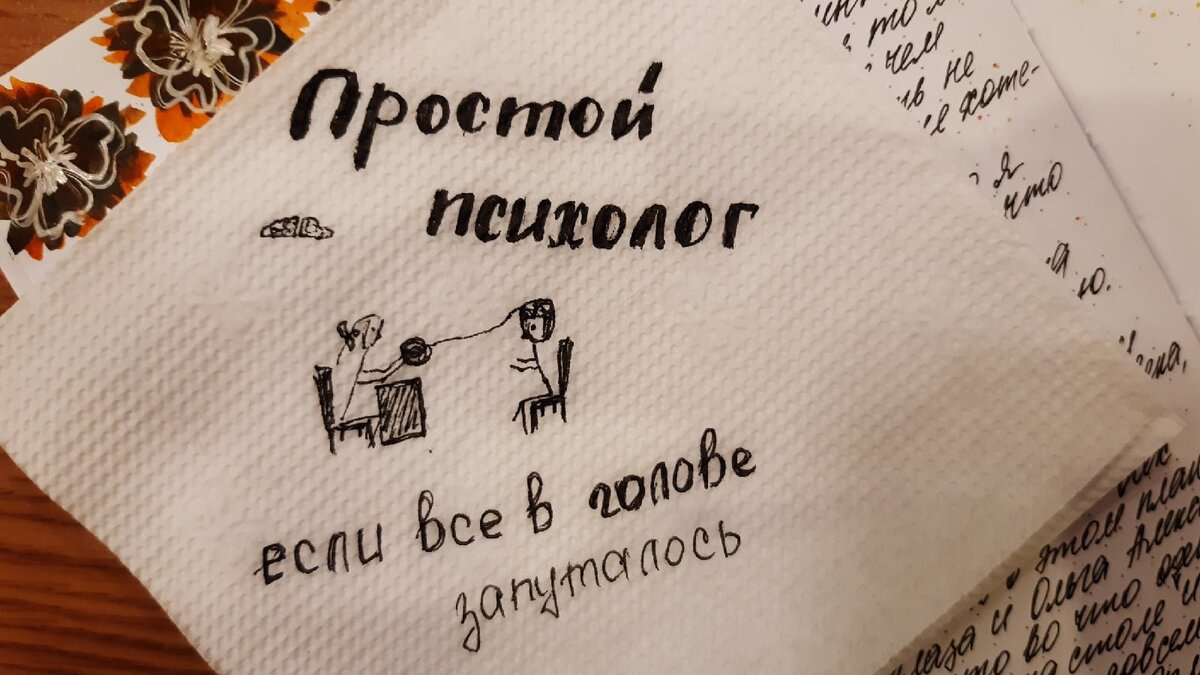 Простой
психолог
если все в голове
запуталось
чем
не
я
что
ю.
этом план
и Ольга Алекса
во что оде
столе и